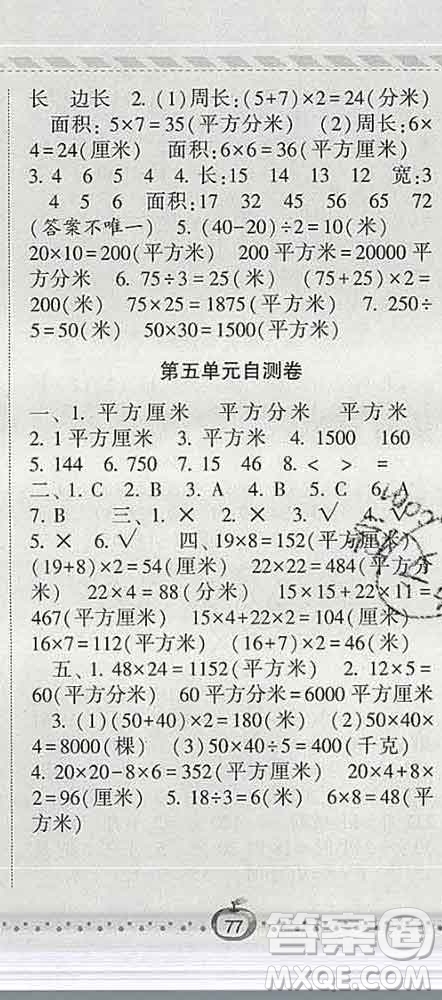 长 边长 2. (1)周长:(5+7)×2=24(分米)
面积:5×7=35(平方分米) (2)周长:6×
4=24(厘米) 面积:6×6=36(平方厘米)
3. 4 6 5 4 4. 长:15 14 13 12 宽:3
4 5 6 面积:17 32 45 56 65 72
(答案不唯一) 5. (40-20)÷2=10(米)
20×10=200(平方米) 200平方米=20000平
方分米 6. 75÷3=25(米) (75+25)×2=
200(米) 75×25=1875(平方米) 7. 250÷
5=50(米) 50×30=1500(平方米)
第五单元自测卷
一、1. 平方厘米 平方分米 平方米
2. 1平方厘米 3. 平方米 4. 1500 160
5. 144 6. 750 7. 15 46 8. < > =
二、1. C 2. B 3. A 4. B 5. C 6. A
7. B 三、1. × 2. × 3. √ 4. √
5. × 6. √ 四、19×8=152(平方厘米)
(19+8)×2=54(厘米) 22×22=484(平方分
米) 22×4=88(分米) 15×15+22×11=
467(平方厘米) 15×4+22×2=104(厘米)
16×7=112(平方米) (16+7)×2=46(米)
五、1. 48×24=1152(平方米) 2. 12×5=
60(平方分米) 60平方分米=6000平方厘米
3. (1)(50+40)×2=180(米) (2)50×40×
4=8000(棵) (3)50×40÷5=400(千克)
4. 20×20-8×6=352(平方厘米) 20×4+8×
2=96(厘米) 5. 18÷3=6(米) 6×8=48(平
方米)
77
答案圈
MXQE.COM